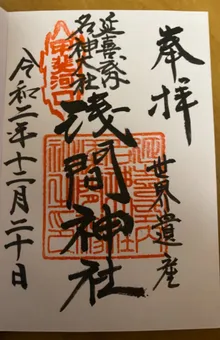 奉拝
世界遺産
延喜式
名神大社
浅間神社
甲斐河口
令和二年十二月二十日